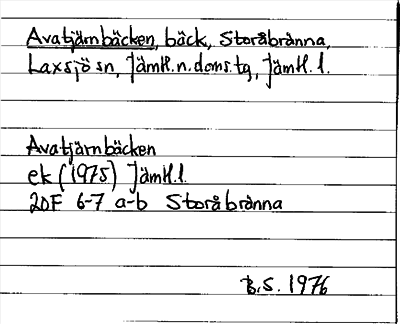 Avatjärnbäcken, bäck, Storåbränna,
Laxsjö sn, Jämtl.n.doms.tg, Jämtl. l.
Avatjärnbäcken
ek (1975) Jämtl.l.
20F 6-7 a-b Storåbränna
B.S. 1976